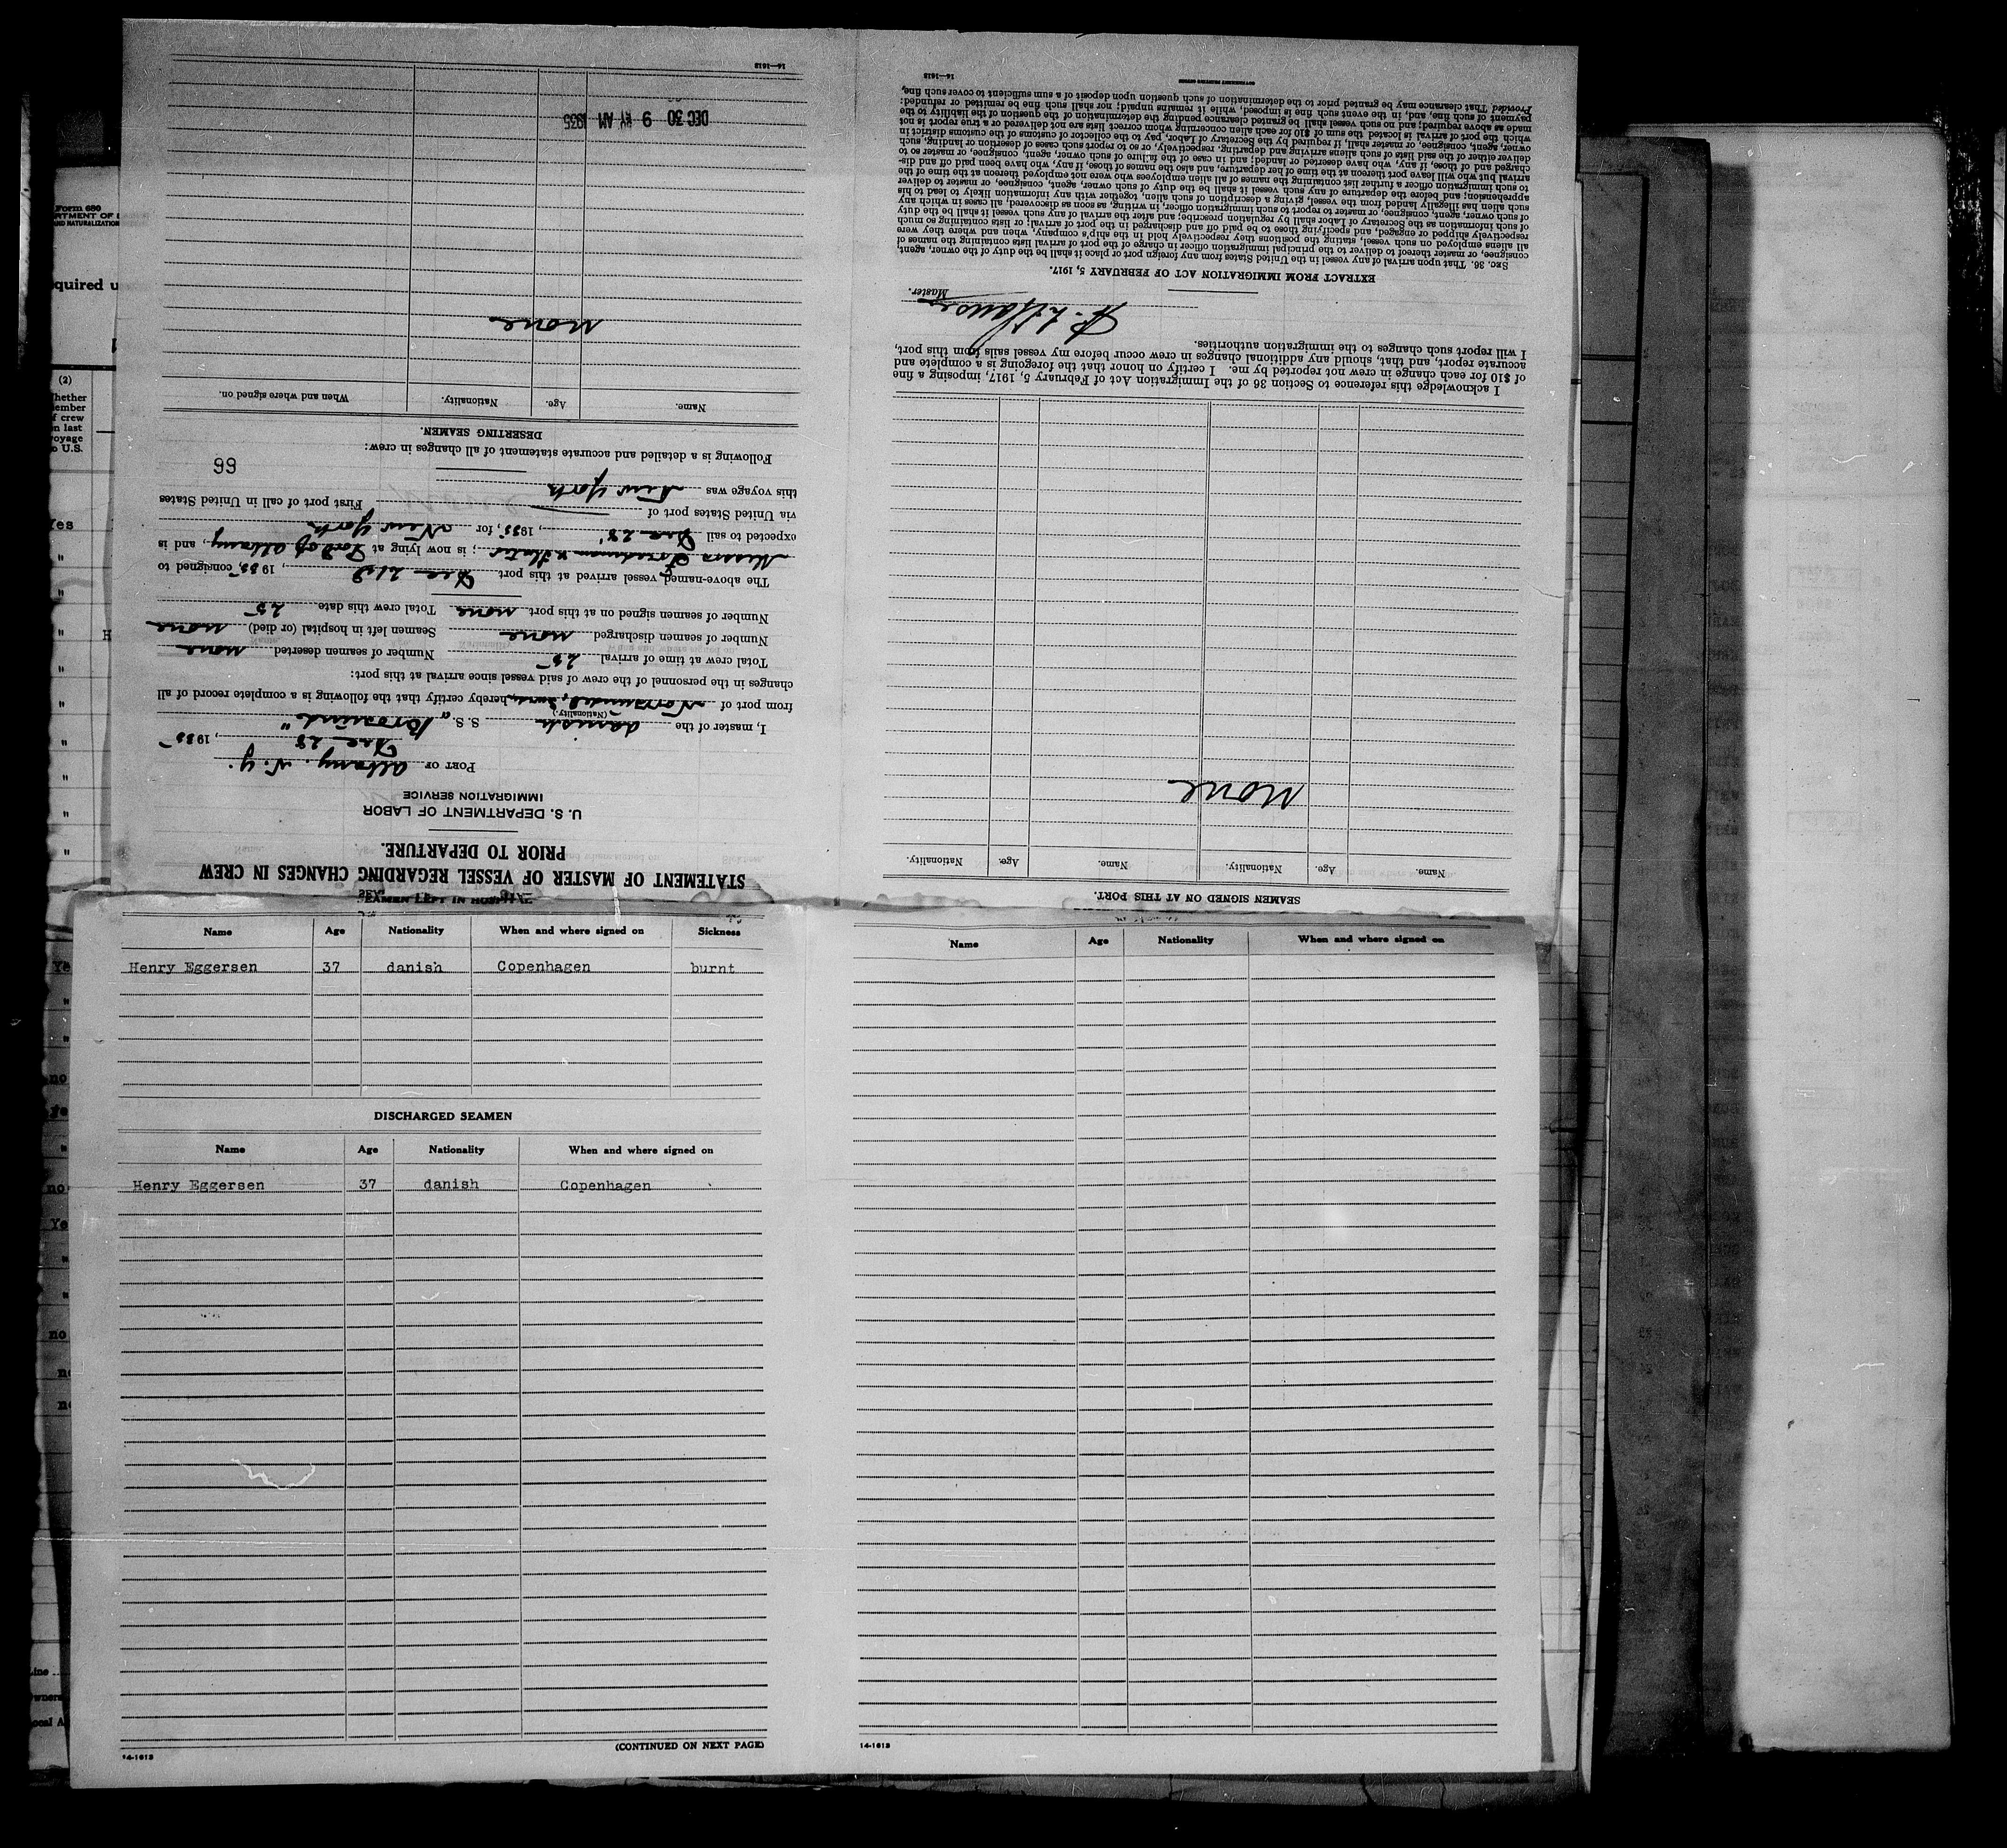 STATEMENT OF MASTER OF VESSEL REGARDING CHANGES IN CREW
PRIOR TO DEPARTURE.
U. S. DEPARTMENT OF LABOR
IMMIGRATION SERVICE
PORT OF Albany. N. Y.
Dec 28, 1935
I, master of the danish S. S. "
(Nationality.)
from port of hereby certify that the following is a complete record of all
changes in the personnel of the crew of said vessel since arrival at this port:
Total crew at time of arrival 25 Number of seamen deserted none
Number of seamen discharged none Seamen left in hospital (or died) none
Number of seamen signed on at this port none Total crew this date 25
The above-named vessel arrived at this port Dec 21, 1935, consigned to
; is now lying at Port of Albany, and is
expected to sail Dec 28', 1935, for New York
via United States port of First port of call in United States
this voyage was New York
99
Following is a detailed and accurate statement of all changes in crew:
DESERTING SEAMEN.
Name. Age. Nationality. When and where signed on.
none
DEC 30 9 AM 1935
14—1613
SEAMEN SIGNED ON AT THIS PORT.
Name. Age. Nationality. Name. Age. Nationality.
none
I acknowledge this reference to Section 36 of the Immigration Act of February 5, 1917, imposing a fine
of $10 for each change in crew not reported by me. I certify on honor that the foregoing is a complete and
accurate report, and that, should any additional changes in crew occur before my vessel sails from this port,
I will report such changes to the immigration authorities.
Master.
EXTRACT FROM IMMIGRATION ACT OF FEBRUARY 5, 1917.
SEC. 36. That upon arrival of any vessel in the United States from any foreign port or place it shall be the duty of the owner, agent,
consignee, or master thereof to deliver to the principal immigration officer in charge of the port of arrival lists containing the names of
all aliens employed on such vessel, stating the positions they respectively hold in the ship's company, when and where they were
respectively shipped or engaged, and specifying those to be paid off and discharged in the port of arrival; or lists containing so much
of such information as the Secretary of Labor shall by regulation prescribe; and after the arrival of any such vessel it shall be the duty
of such owner, agent, consignee, or master to report to such immigration officer, in writing, as soon as discovered, all cases in which any
such alien has illegally landed from the vessel, giving a description of such alien, together with any information likely to lead to his
apprehension; and before the departure of any such vessel it shall be the duty of such owner, agent, consignee, or master to deliver
to such immigration officer a further list containing the names of all alien employees who were not employed thereon at the time of the
arrival but who will leave port thereon at the time of her departure, and also the names of those, if any, who have been paid off and dis-
charged and of those, if any, who have deserted or landed; and in case of the failure of such owner, agent, consignee, or master so to
deliver either of the said lists of such aliens arriving and departing, respectively, or so to report such cases of desertion or landing, such
owner, agent, consignee, or master shall, if required by the Secretary of Labor, pay to the collector of customs of the customs district in
which the port of arrival is located the sum of $10 for each alien concerning whom correct lists are not delivered or a true report is not
made as above required; and no such vessel shall be granted clearance pending the determination of the question of the liability to the
payment of such fine, and, in the event such fine is imposed, while it remains unpaid; nor shall such fine be remitted or refunded:
Provided That clearance may be granted prior to the determination of such question upon deposit of a sum sufficient to cover such fine,
14—1613
GOVERNMENT PRINTING OFFICE
SEAMEN LEFT IN HOSPITAL
Name Age Nationality When and where signed on Sickness
Henry Eggersen 37 danish Copenhagen burnt
DISCHARGED SEAMEN
Name Age Nationality When and where signed on
Henry Eggersen 37 danish Copenhagen
(CONTINUED ON NEXT PAGE)
14-1613
Name Age Nationality When and where signed on
14-1613
Form 680
quired u
(2)
f crew
n last
oyage
o U.S.